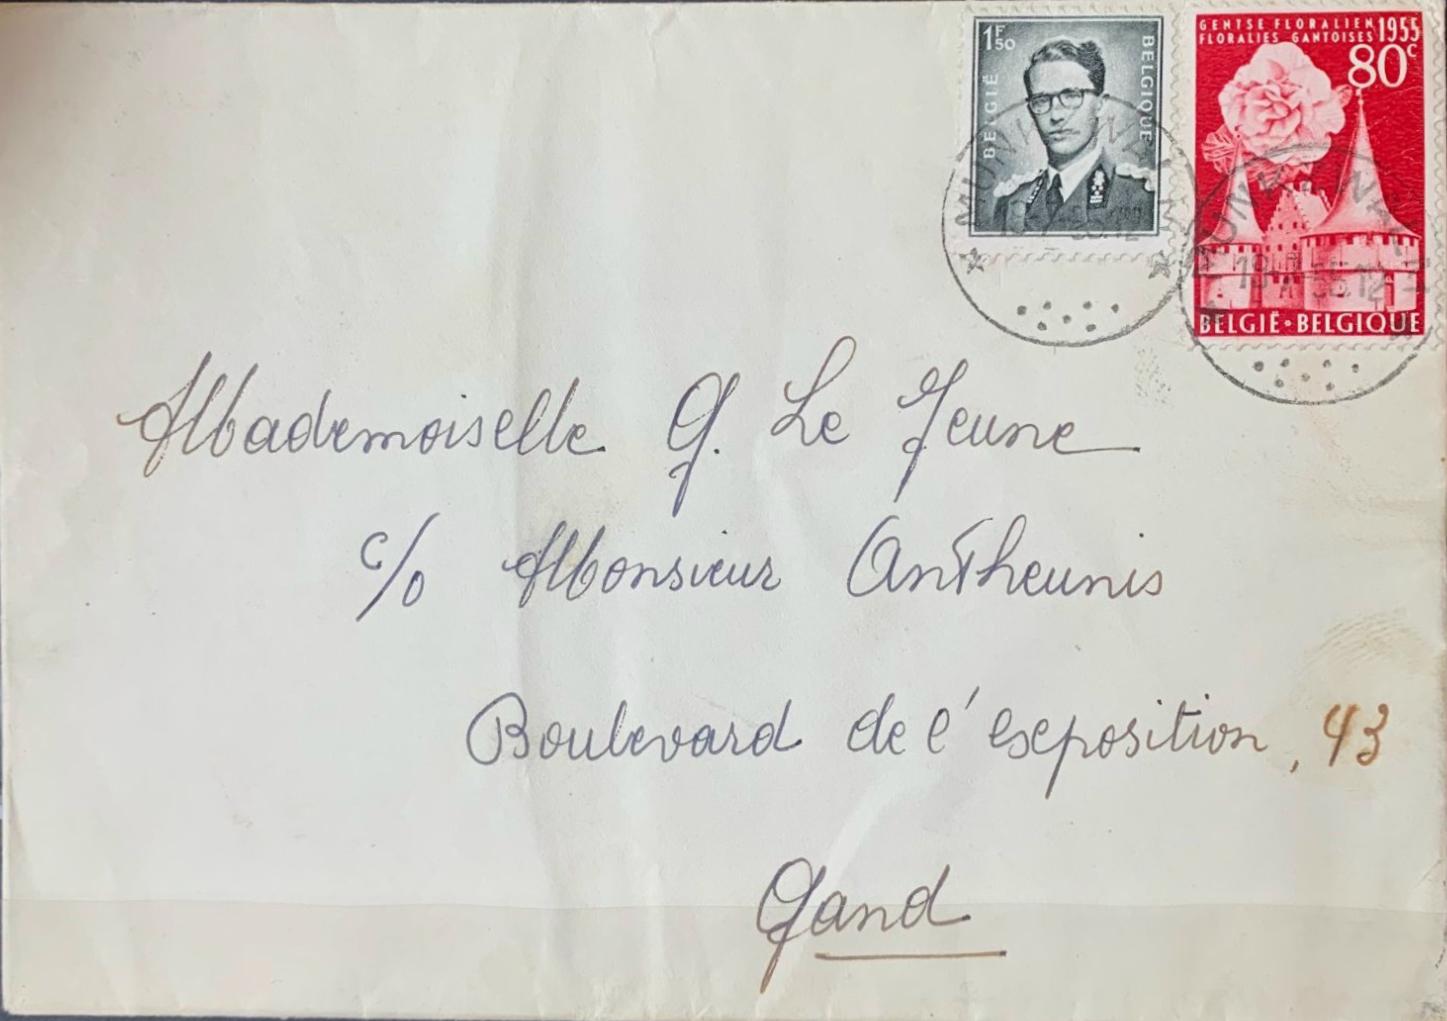 1F50
BELGIË
BELGIQUE
GENTSE FLORALIEN 1955
FLORALIES GANTOISES
80c
BELGIË·BELGIQUE
MUNKZWALM
MUNKZWALM
55.12
Mademoiselle G. Le Jeune
c/o Monsieur Antheunis
Boulevard de l'exposition, 43
Gand